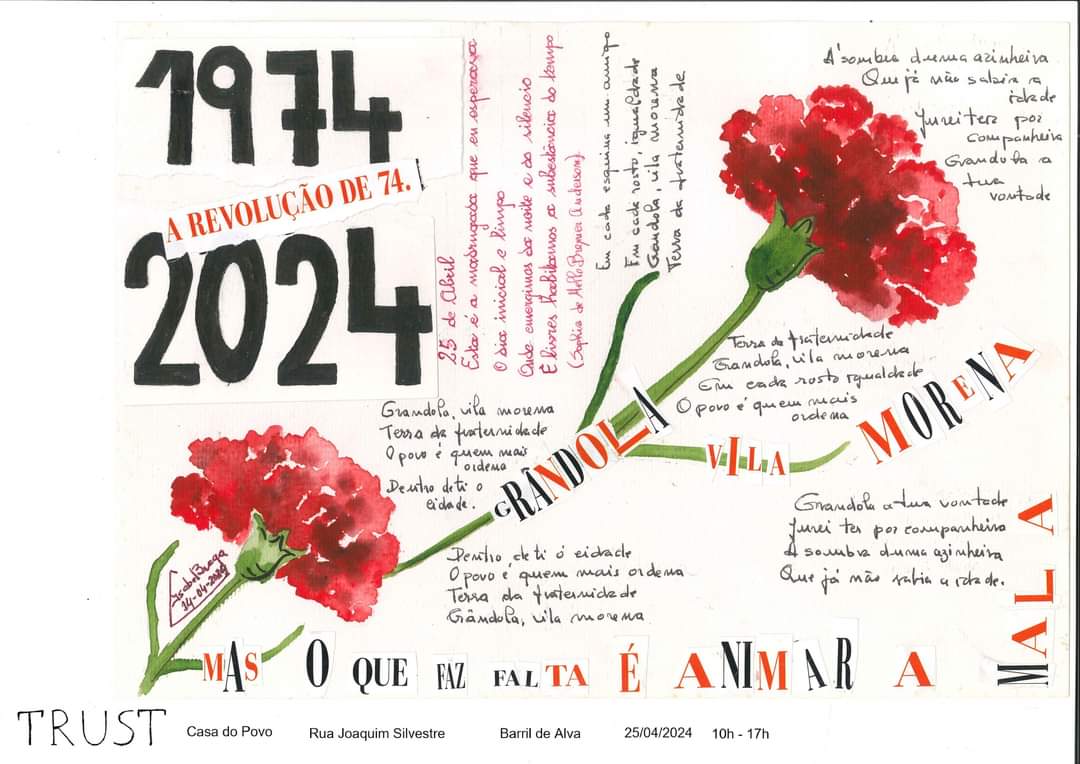 1974
A REVOLUÇÃO DE 74.
2024
25 de Abril
Esta é a madrugada que eu esperava
O dia inicial e limpo
Onde emergimos da noite e do silêncio
E livres habitamos a substância do tempo
(Sophia de Mello Breyner Andersen)
Em cada esquina um amigo
Em cada rosto, igualdade
Grândola, vila morena
Terra da fraternidade
À sombra duma azinheira
Que já não sabia a
idade
Jurei ter por
companheira
Grandola a
tua
vontade
Terra da fraternidade
Grandola, vila morena
Em cada rosto igualdade
O povo é quem mais
ordena
Grandola, vila morena
Terra da fraternidade
O povo é quem mais
ordena
Dentro de ti o
cidade.
GRÂNDOLA
VILA
MORENA
Dentro de ti ó cidade
O povo é quem mais ordena
Terra da fraternidade
Grândola, vila morena
Grandola a tua vontade
Jurei ter por companheira
À sombra duma azinheira
Que já não sabia a idade.
Isabel Braga
14-04-2024
MAS O QUE FAZ FALTA É ANIMAR A
MALA
TRUST
Casa do Povo Rua Joaquim Silvestre Barril de Alva 25/04/2024 10h - 17h